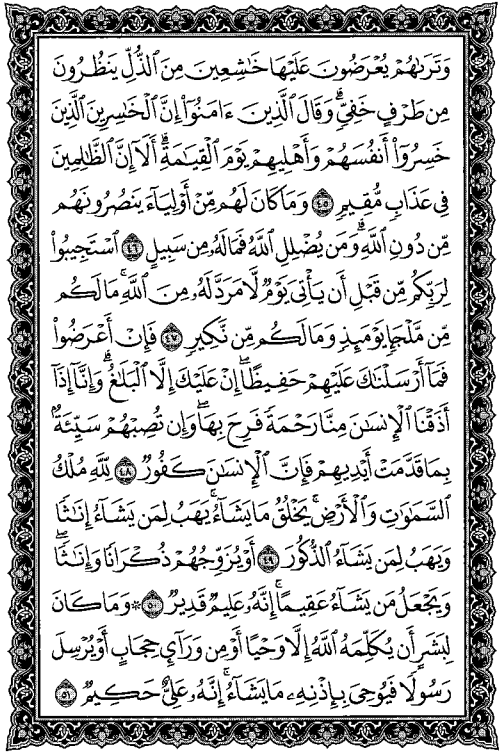 وَتَرَىٰهُمْ يُعْرَضُونَ عَلَيْهَا خَٰشِعِينَ مِنَ ٱلذُّلِّ يَنظُرُونَ
مِن طَرْفٍ خَفِىٍّ ۗ وَقَالَ ٱلَّذِينَ ءَامَنُوٓا۟ إِنَّ ٱلْخَٰسِرِينَ ٱلَّذِينَ
خَسِرُوٓا۟ أَنفُسَهُمْ وَأَهْلِيهِمْ يَوْمَ ٱلْقِيَٰمَةِ ۗ أَلَآ إِنَّ ٱلظَّٰلِمِينَ
فِى عَذَابٍ مُّقِيمٍ ٤٥ وَمَا كَانَ لَهُم مِّنْ أَوْلِيَآءَ يَنصُرُونَهُم
مِّن دُونِ ٱللَّهِ ۗ وَمَن يُضْلِلِ ٱللَّهُ فَمَا لَهُۥ مِن سَبِيلٍ ٤٦ ٱسْتَجِيبُوا۟
لِرَبِّكُم مِّن قَبْلِ أَن يَأْتِىَ يَوْمٌ لَّا مَرَدَّ لَهُۥ مِنَ ٱللَّهِ ۚ مَا لَكُم
مِّن مَّلْجَإٍ يَوْمَئِذٍ وَمَا لَكُم مِّن نَّكِيرٍ ٤٧ فَإِنْ أَعْرَضُوا۟
فَمَآ أَرْسَلْنَٰكَ عَلَيْهِمْ حَفِيظًا ۖ إِنْ عَلَيْكَ إِلَّا ٱلْبَلَٰغُ ۗ وَإِنَّآ إِذَآ
أَذَقْنَا ٱلْإِنسَٰنَ مِنَّا رَحْمَةً فَرِحَ بِهَا ۖ وَإِن تُصِبْهُمْ سَيِّئَةٌۢ
بِمَا قَدَّمَتْ أَيْدِيهِمْ فَإِنَّ ٱلْإِنسَٰنَ كَفُورٌ ٤٨ لِّلَّهِ مُلْكُ
ٱلسَّمَٰوَٰتِ وَٱلْأَرْضِ ۚ يَخْلُقُ مَا يَشَآءُ ۚ يَهَبُ لِمَن يَشَآءُ إِنَٰثًا
وَيَهَبُ لِمَن يَشَآءُ ٱلذُّكُورَ ٤٩ أَوْ يُزَوِّجُهُمْ ذُكْرَانًا وَإِنَٰثًا ۖ
وَيَجْعَلُ مَن يَشَآءُ عَقِيمًا ۚ إِنَّهُۥ عَلِيمٌ قَدِيرٌ ٥٠ ۞ وَمَا كَانَ
لِبَشَرٍ أَن يُكَلِّمَهُ ٱللَّهُ إِلَّا وَحْيًا أَوْ مِن وَرَآئِ حِجَابٍ أَوْ يُرْسِلَ
رَسُولًا فَيُوحِىَ بِإِذْنِهِۦ مَا يَشَآءُ ۚ إِنَّهُۥ عَلِىٌّ حَكِيمٌ ٥١